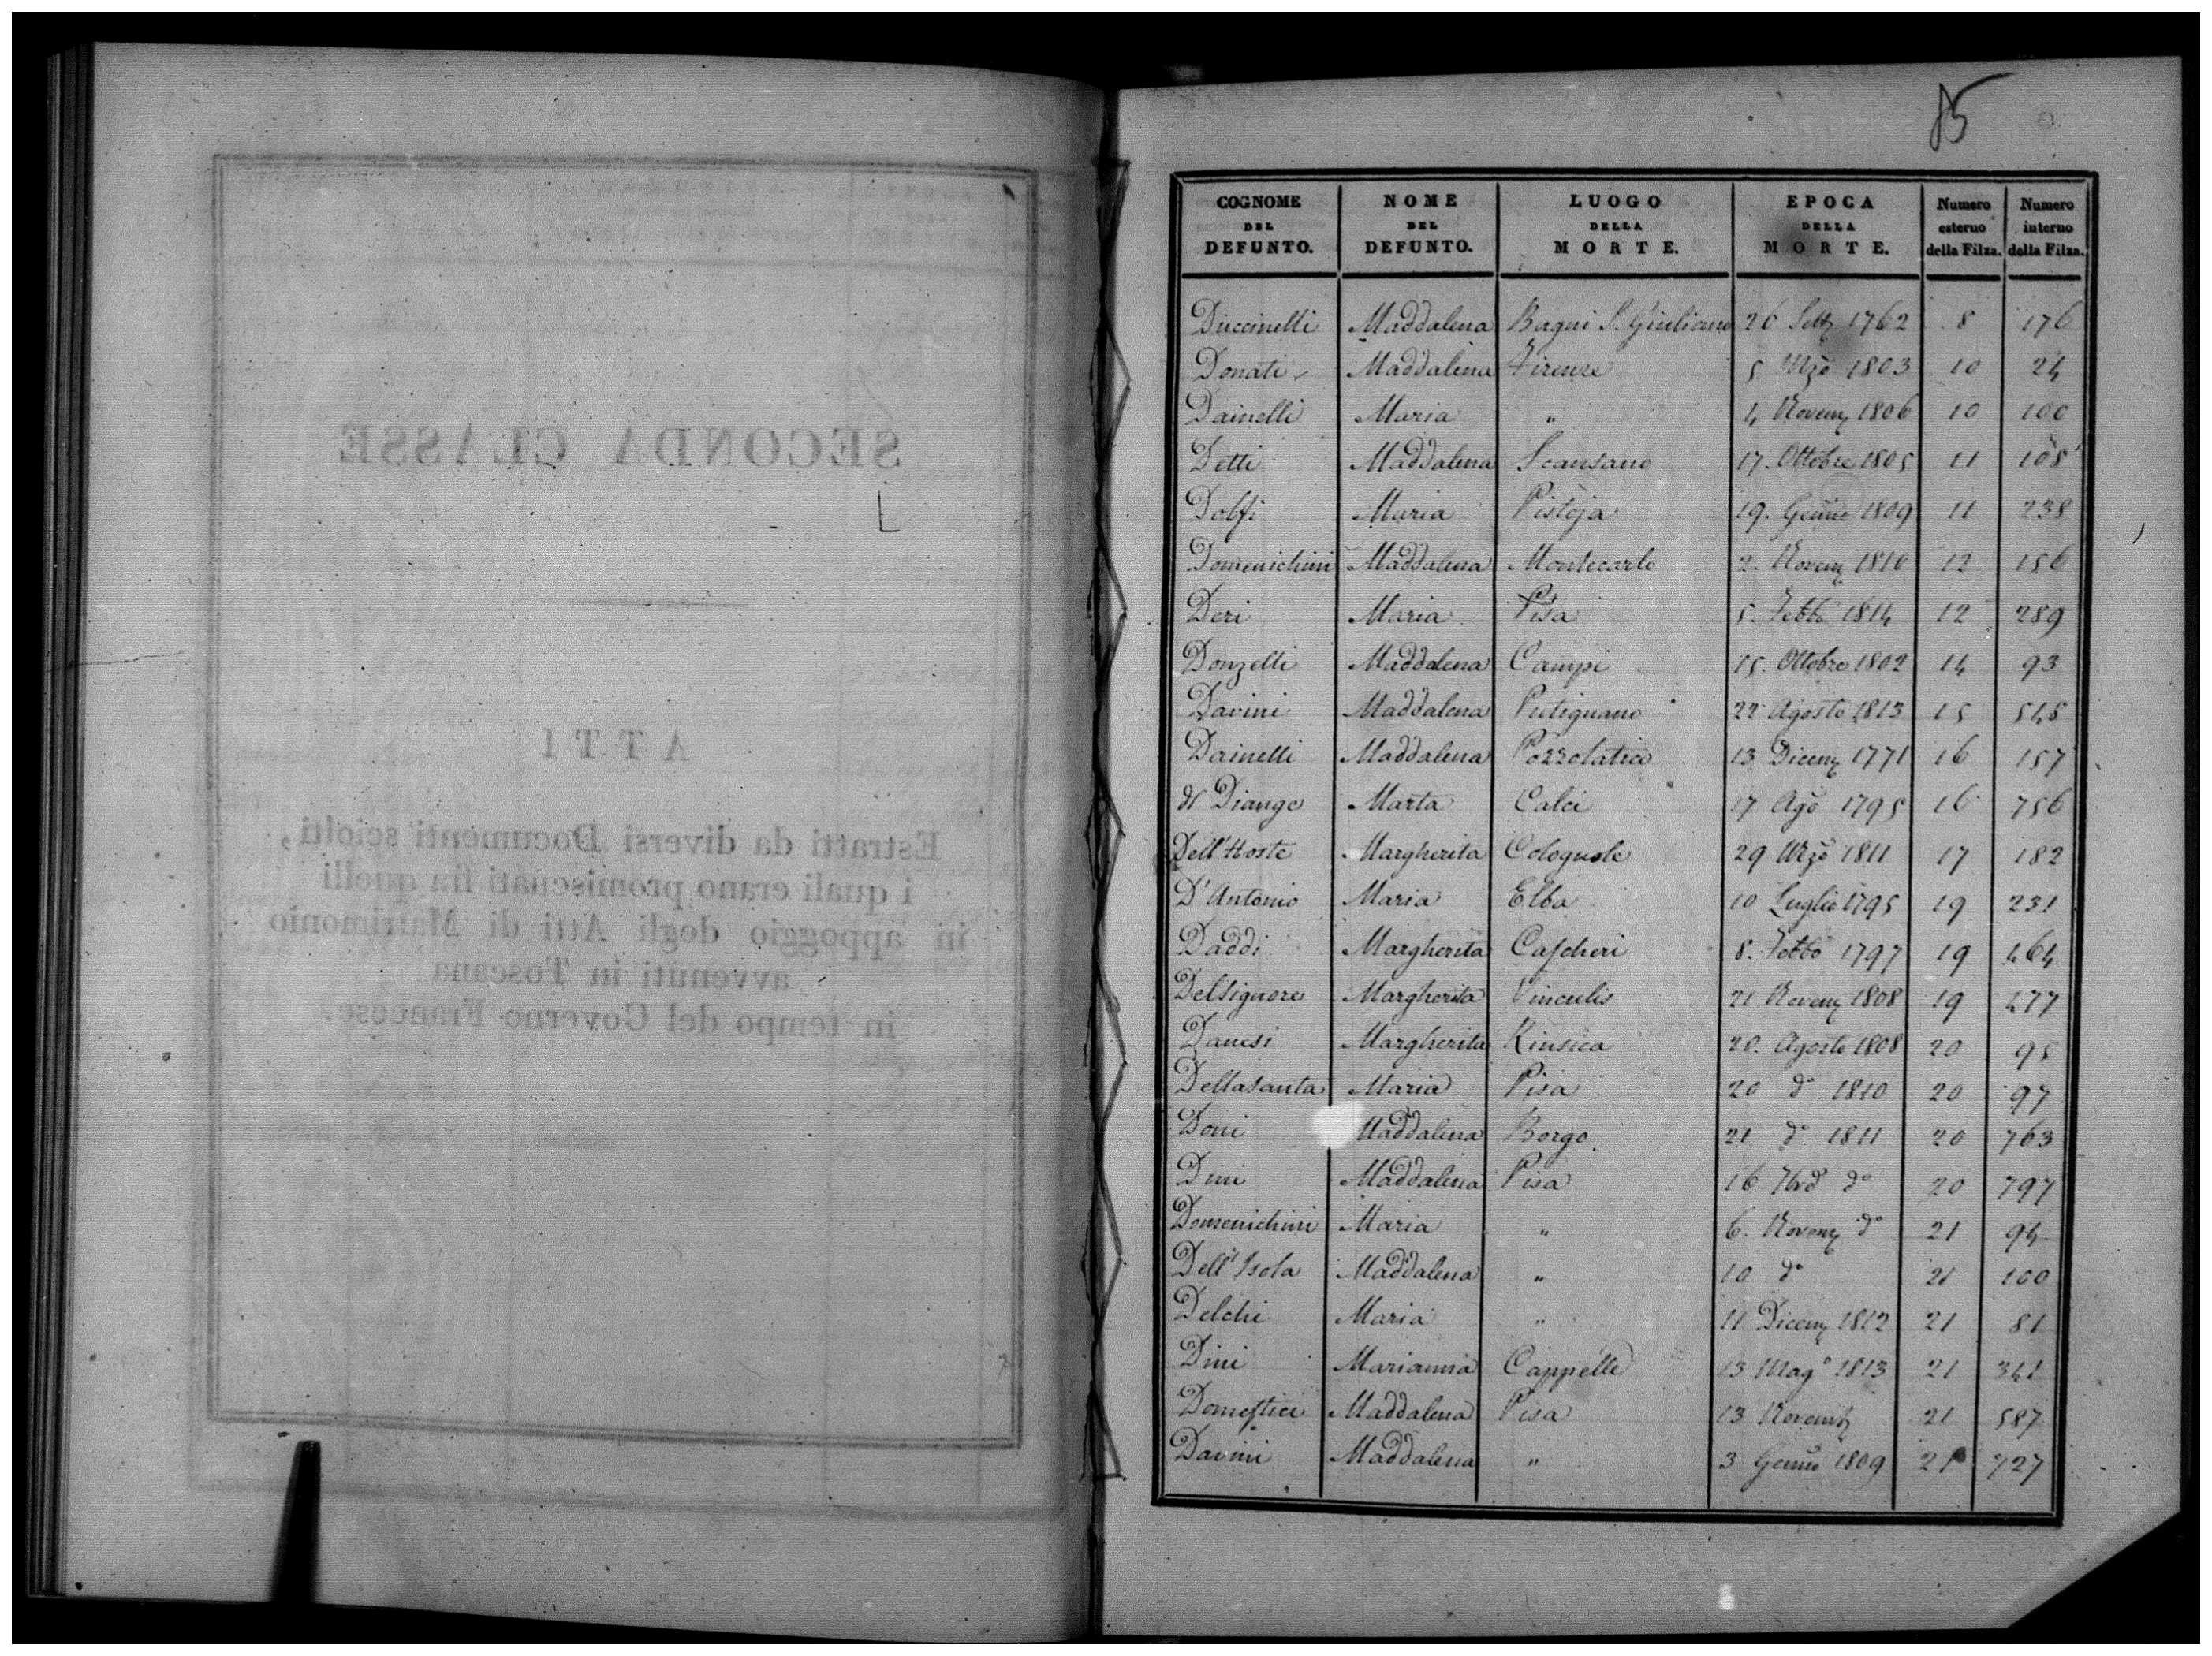 SECONDA CLASSE
ATTI
Estratti da diversi Documenti sciolti,
i quali erano promiscuati fra quelli
in appoggio degli Atti di Matrimonio
avvenuti in Toscana
in tempo del Governo Francese.
85
COGNOME DEL DEFUNTO. NOME DEL DEFUNTO. LUOGO DELLA MORTE. EPOCA DELLA MORTE. Numero esterno della Filza. Numero interno della Filza.
Duccinelli Maddalena Bagni S. Giuliano 26 Sett 1762 8 176
Donati Maddalena Firenze 5 Mzo 1803 10 24
Dainelli Maria " 4 Novem 1806 10 100
Detti Maddalena Scansano 17. Ottobre 1805 11 108
Dolfi Maria Pistoja 19. Genne 1809 11 238
Domenichini Maddalena Montecarlo 2. Novem 1810 12 156
Deri Maria Pisa 5. Febbo 1814 12 289
Donzelli Maddalena Campi 15. Ottobre 1802 14 93
Davini Maddalena Putignano 22 Agosto 1813 15 548
Dainelli Maddalena Pozzolatico 13 Dicem 1771 16 157
di Diango Marta Calci 17 Ago 1795 16 756
Dell'Hoste Margherita Colognole 29 Mzo 1811 17 182
D'Antonio Maria Elba 10 Luglio 1795 19 231
Daddi Margherita Cascheri 8. Febbo 1797 19 464
Delsignore Margherita Vinculis 21 Novem 1808 19 477
Danesi Margherita Kinsica 20. Agosto 1808 20 95
Dellasanta Maria Pisa 20 do 1810 20 97
Doni Maddalena Borgo 21 do 1811 20 763
Dini Maddalena Pisa 16 7bre do 20 797
Domenichini Maria " 6. Novem do 21 94
Dell'Isola Maddalena " 10 do 21 100
Delchi Maria " 11 Dicem 1812 21 81
Dini Marianna Cappelle 13 Mago 1813 21 341
Domestici Maddalena Pisa 13 Novemb 21 587
Davini Maddalena " 3 Genno 1809 21 727